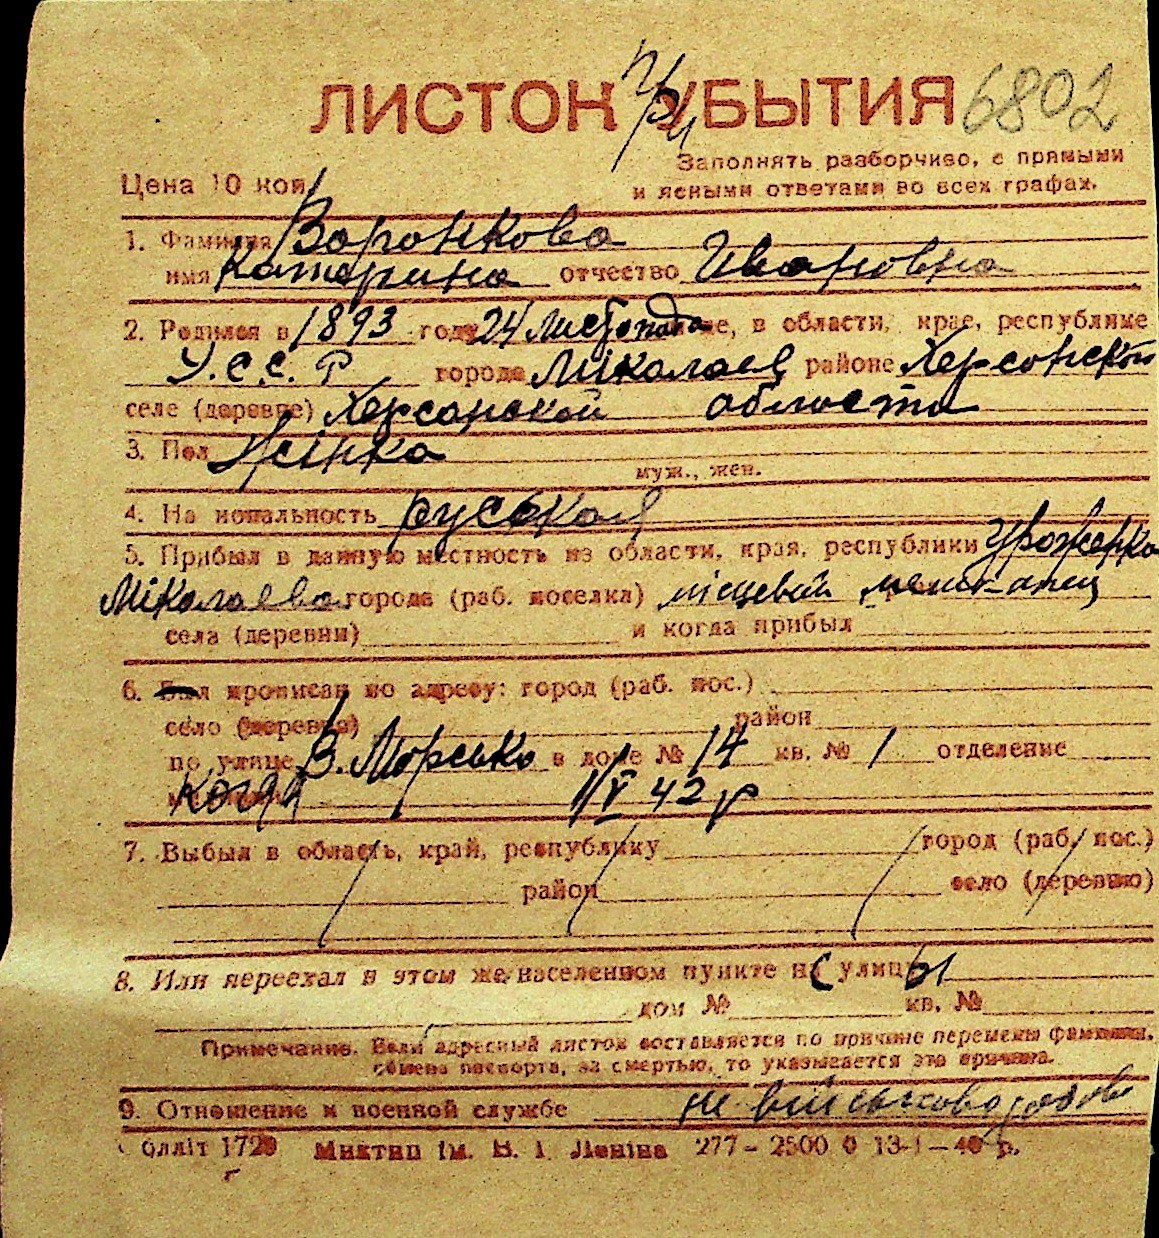 ЛИСТОК УБЫТИЯ 6802
при
Заполнять разборчиво, с прямыми
и ясными ответами во всех графах.
Цена 10 коп.
1. Фамилия Воронкова
имя Катарина отчество Ивановна
2. Родился в 1893 году 24 листопада, в области, крае, республике
У.С.С.Р городе Міколаев районе Херсонской
селе (деревне) Херсонской области
3. Пол Жінка
муж., жен.
4. Национальность русская
5. Прибыл в данную местность из области, края, республики Уроженка
Міколаева города (раб. поселка) місцевий мешканец
села (деревни) и когда прибыл
6. Был прописан по адресу: город (раб. пос.)
село (деревня) район
по улице В. Морська в доме № 14 кв. № 1 отделение
когда 1/V 42 р
7. Выбыл в область, край, республику город (раб. пос.)
район село (деревню)
8. Или переехал в этом же населенном пункте с улицы
дом № кв. №
Примечание. Если адресный листок составляется по причине перемены фамилии,
обмена паспорта, за смертью, то указывается эта причина.
9. Отношение к военной службе не військовозобов
Облліт 1720 Миктип ім. В. І. Леніна 277 – 2500 0 13-1 – 40 р.